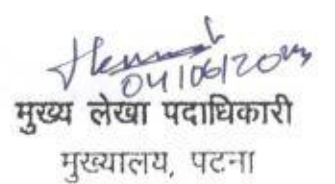 04/06/20
मुख्य लेखा पदाधिकारी
मुख्यालय, पटना